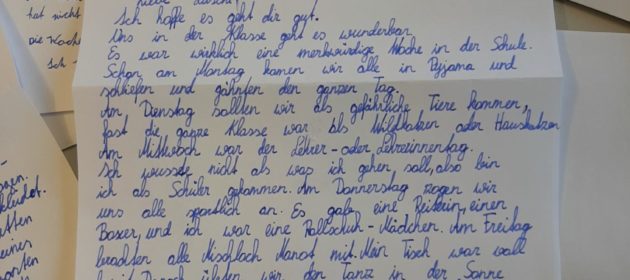 hat nicht
die Woche
Ich
Ich hoffe es geht dir gut.
Uns in der Klasse geht es wunderbar.
Es war wirklich eine merkwürdige Woche in der Schule.
Schon am Montag kamen wir alle in Pyjama und
schliefen und gähnten den ganzen Tag.
Am Dienstag sollten wir als gefährliche Tiere kommen,
fast die ganze Klasse war als Wildkatzen oder Hauskatzen
Am Mittwoch war der Lehrer- oder Lehrerinnentag.
Ich wusste nicht als was ich gehen soll, also bin
ich als Schüler gekommen. Am Donnerstag zogen wir
uns alle sportlich an. Es gab eine Reiterin, einen
Boxer, und ich war eine Rollschuh-Mädchen. Am Freitag
brachten alle Mischloch Manot mit. Mein Tisch war voll
wir den Tanz in der Sonne